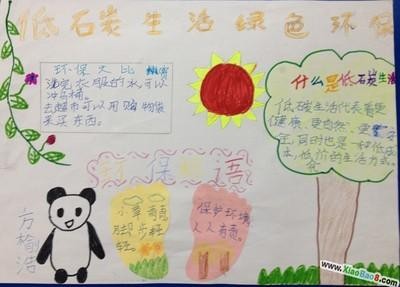 低石炭生活绿色环保
环保大比
洗完衣服的水可以
冲马桶。
去超市可以用购物袋
来买东西。
什么是低石炭生活
低石炭生活代表着更
健康、更自然、更安
全,同时也是一种低成
本,低价的生活方式。
环保标语
小草有毒
脚步轻
轻。
保护环境,
人人有责。
方榆浩
www.XiaoBao8.com